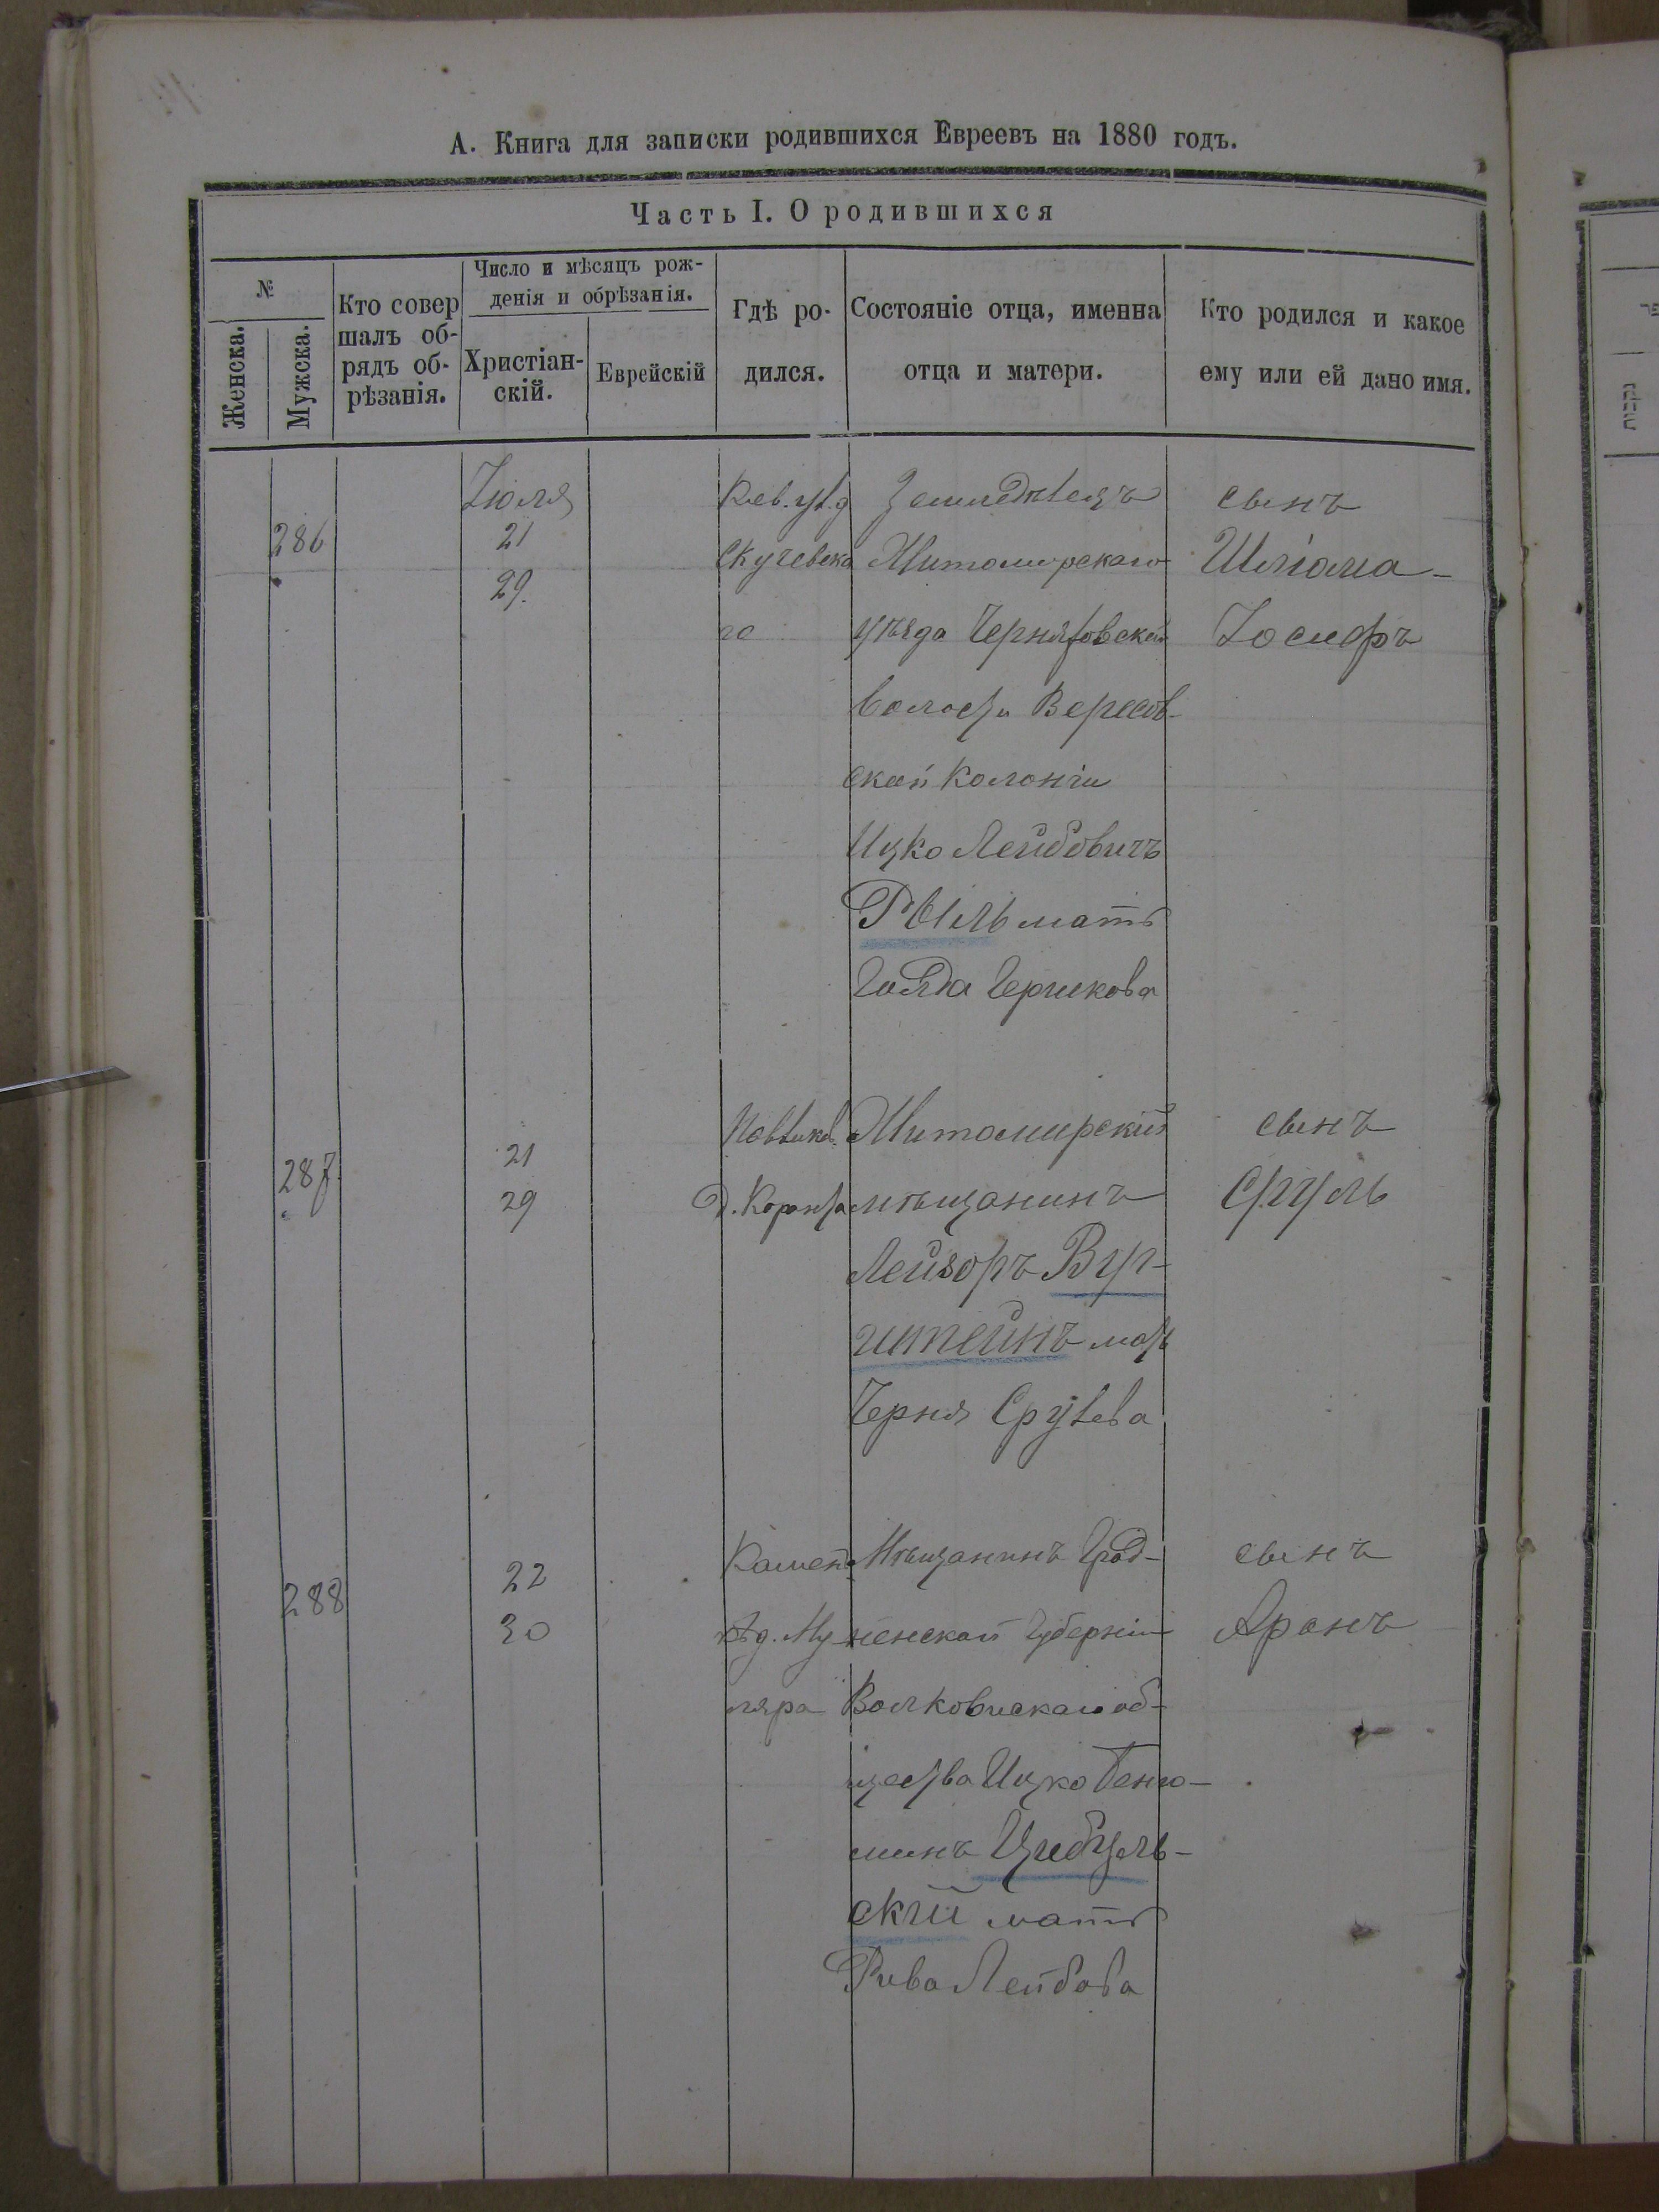 А. Книга для записки родившихся Евреевъ на 1880 годъ.
Часть I. О родившихся
№
Женска.
Мужска.
Кто совер
шалъ об-
рядъ об-
рѣзанія.
Число и мѣсяцъ рож-
денія и обрѣзанія.
Христіан-
скій.
Еврейскій
Гдѣ ро-
дился.
Состояніе отца, именна
отца и матери.
Кто родился и какое
ему или ей дано имя.
286
Іюля
21
29.
Скучевска
го
Земледѣлецъ
Житомирскаго
уѣзда Черняховской
волости Вересов-
ской Колоніи
Ицко Лейбовичъ
мать
Голда Гершкова
сынъ
Шліома-
Іосифъ
287.
21
29
Житомирскій
мѣщанинъ
Лейзоръ Вур-
штейнъ мать
Черня Срулева
сынъ
Сруль
288
22
30
Мѣщанинъ Грод-
ненской Губерніи
Волковискаго об-
щества Ицко Беню-
минъ Цибуль-
скій мать
Рива Лейбова
сынъ
Аронъ
נקבות